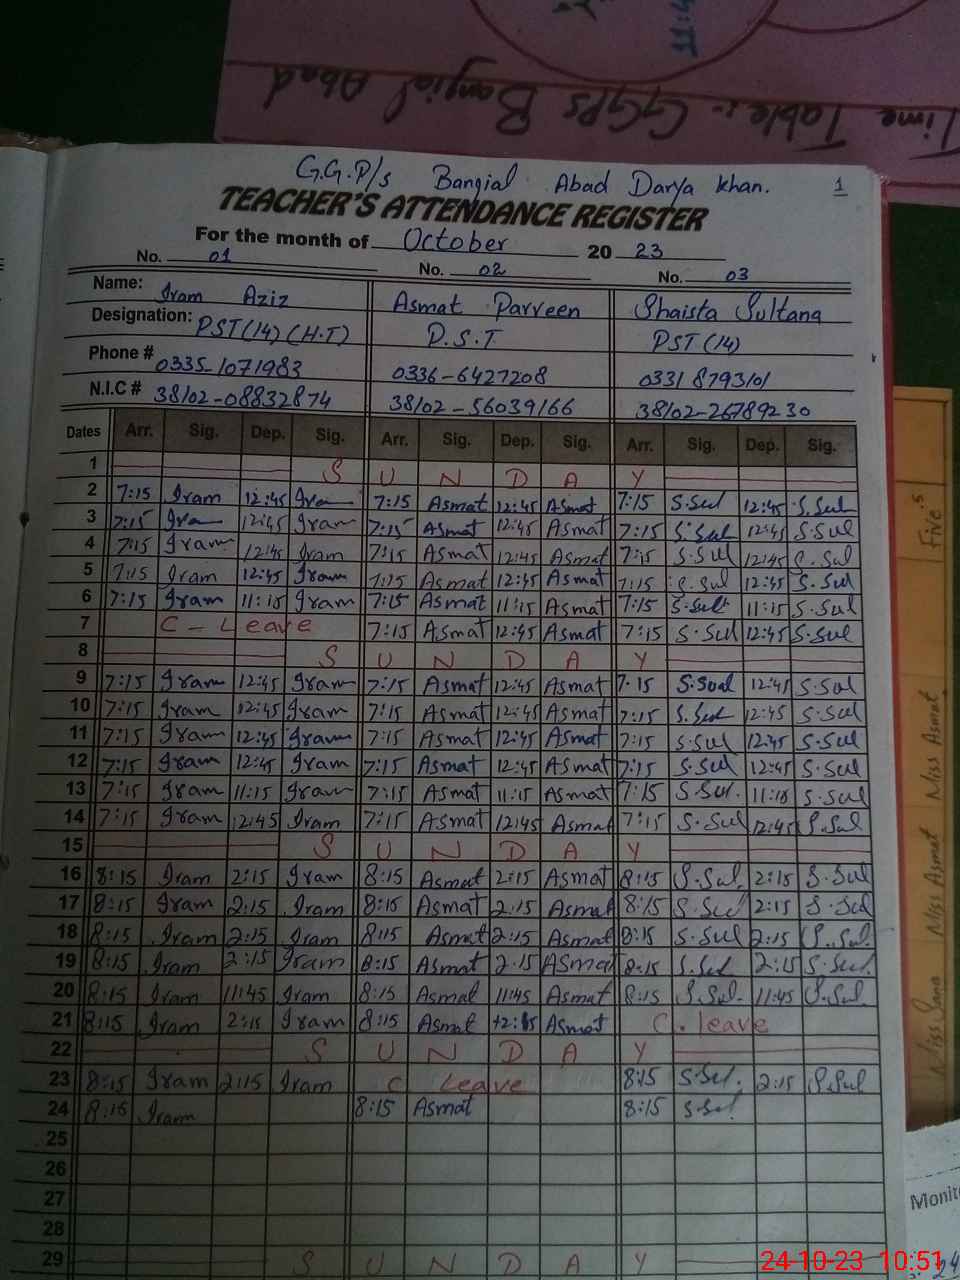 11:4
Time Table:- GGPS Bangial Abad
G.G.P/s Bangial Abad Darya Khan. 1
TEACHER'S ATTENDANCE REGISTER
For the month of October 20 23
No. 01 No. 02 No. 03
Name: Iram Aziz Asmat Parveen Shaista Sultana
Designation: PST(14)(H.T) P.S.T PST(14)
Phone # 0335-1071983 0336-6427208 0331 8793101
N.I.C # 38102-08832874 38102-56039166 38102-26789230
Dates Arr. Sig. Dep. Sig. Arr. Sig. Dep. Sig. Arr. Sig. Dep. Sig.
1 S U N D A Y
2 7:15 Iram 12:45 Iram 7:15 Asmat 12:45 Asmat 7:15 S.Sul 12:45 S.Sul
3 7:15 Iram 12:45 Iram 7:15 Asmat 12:45 Asmat 7:15 S.Sul 12:45 S.Sul
4 7:15 Iram 12:45 Iram 7:15 Asmat 12:45 Asmat 7:15 S.Sul 12:45 S.Sul
5 7:15 Iram 12:45 Iram 7:15 Asmat 12:45 Asmat 7:15 S.Sul 12:45 S.Sul
6 7:15 Iram 11:15 Iram 7:15 Asmat 11:15 Asmat 7:15 S.Sul 11:15 S.Sul
7 C - Leave 7:15 Asmat 12:45 Asmat 7:15 S.Sul 12:45 S.Sul
8 S U N D A Y
9 7:15 Iram 12:45 Iram 7:15 Asmat 12:45 Asmat 7:15 S.Sul 12:45 S.Sul
10 7:15 Iram 12:45 Iram 7:15 Asmat 12:45 Asmat 7:15 S.Sul 12:45 S.Sul
11 7:15 Iram 12:45 Iram 7:15 Asmat 12:45 Asmat 7:15 S.Sul 12:45 S.Sul
12 7:15 Iram 12:45 Iram 7:15 Asmat 12:45 Asmat 7:15 S.Sul 12:45 S.Sul
13 7:15 Iram 11:15 Iram 7:15 Asmat 11:15 Asmat 7:15 S.Sul. 11:15 S.Sul
14 7:15 Iram 12:45 Iram 7:15 Asmat 12:45 Asmat 7:15 S.Sul 12:45 S.Sul
15 S U N D A Y
16 8:15 Iram 2:15 Iram 8:15 Asmat 2:15 Asmat 8:15 S.Sul. 2:15 S.Sul
17 8:15 Iram 2:15 Iram 8:15 Asmat 2:15 Asmat 8:15 S.Sul 2:15 S.Sul
18 8:15 Iram 2:15 Iram 8:15 Asmat 2:15 Asmat 8:15 S.Sul 2:15 S.Sul.
19 8:15 Iram 2:15 Iram 8:15 Asmat 2:15 Asmat 8:15 S.Sul 2:15 S.Sul.
20 8:15 Iram 11:45 Iram 8:15 Asmat 11:45 Asmat 8:15 S.Sul. 11:45 S.Sul
21 8:15 Iram 2:15 Iram 8:15 Asmat 2:15 Asmat C. leave
22 S U N D A Y
23 8:15 Iram 2:15 Iram C Leave 8:15 S.Sul. 2:15 S.Sul
24 8:15 Iram 8:15 Asmat 8:15 S.Sul
25
26
27
28
29 S U N D A Y
Five 5
Miss Sana Miss Asmat Miss Asmat
Monit
24-10-23 10:51